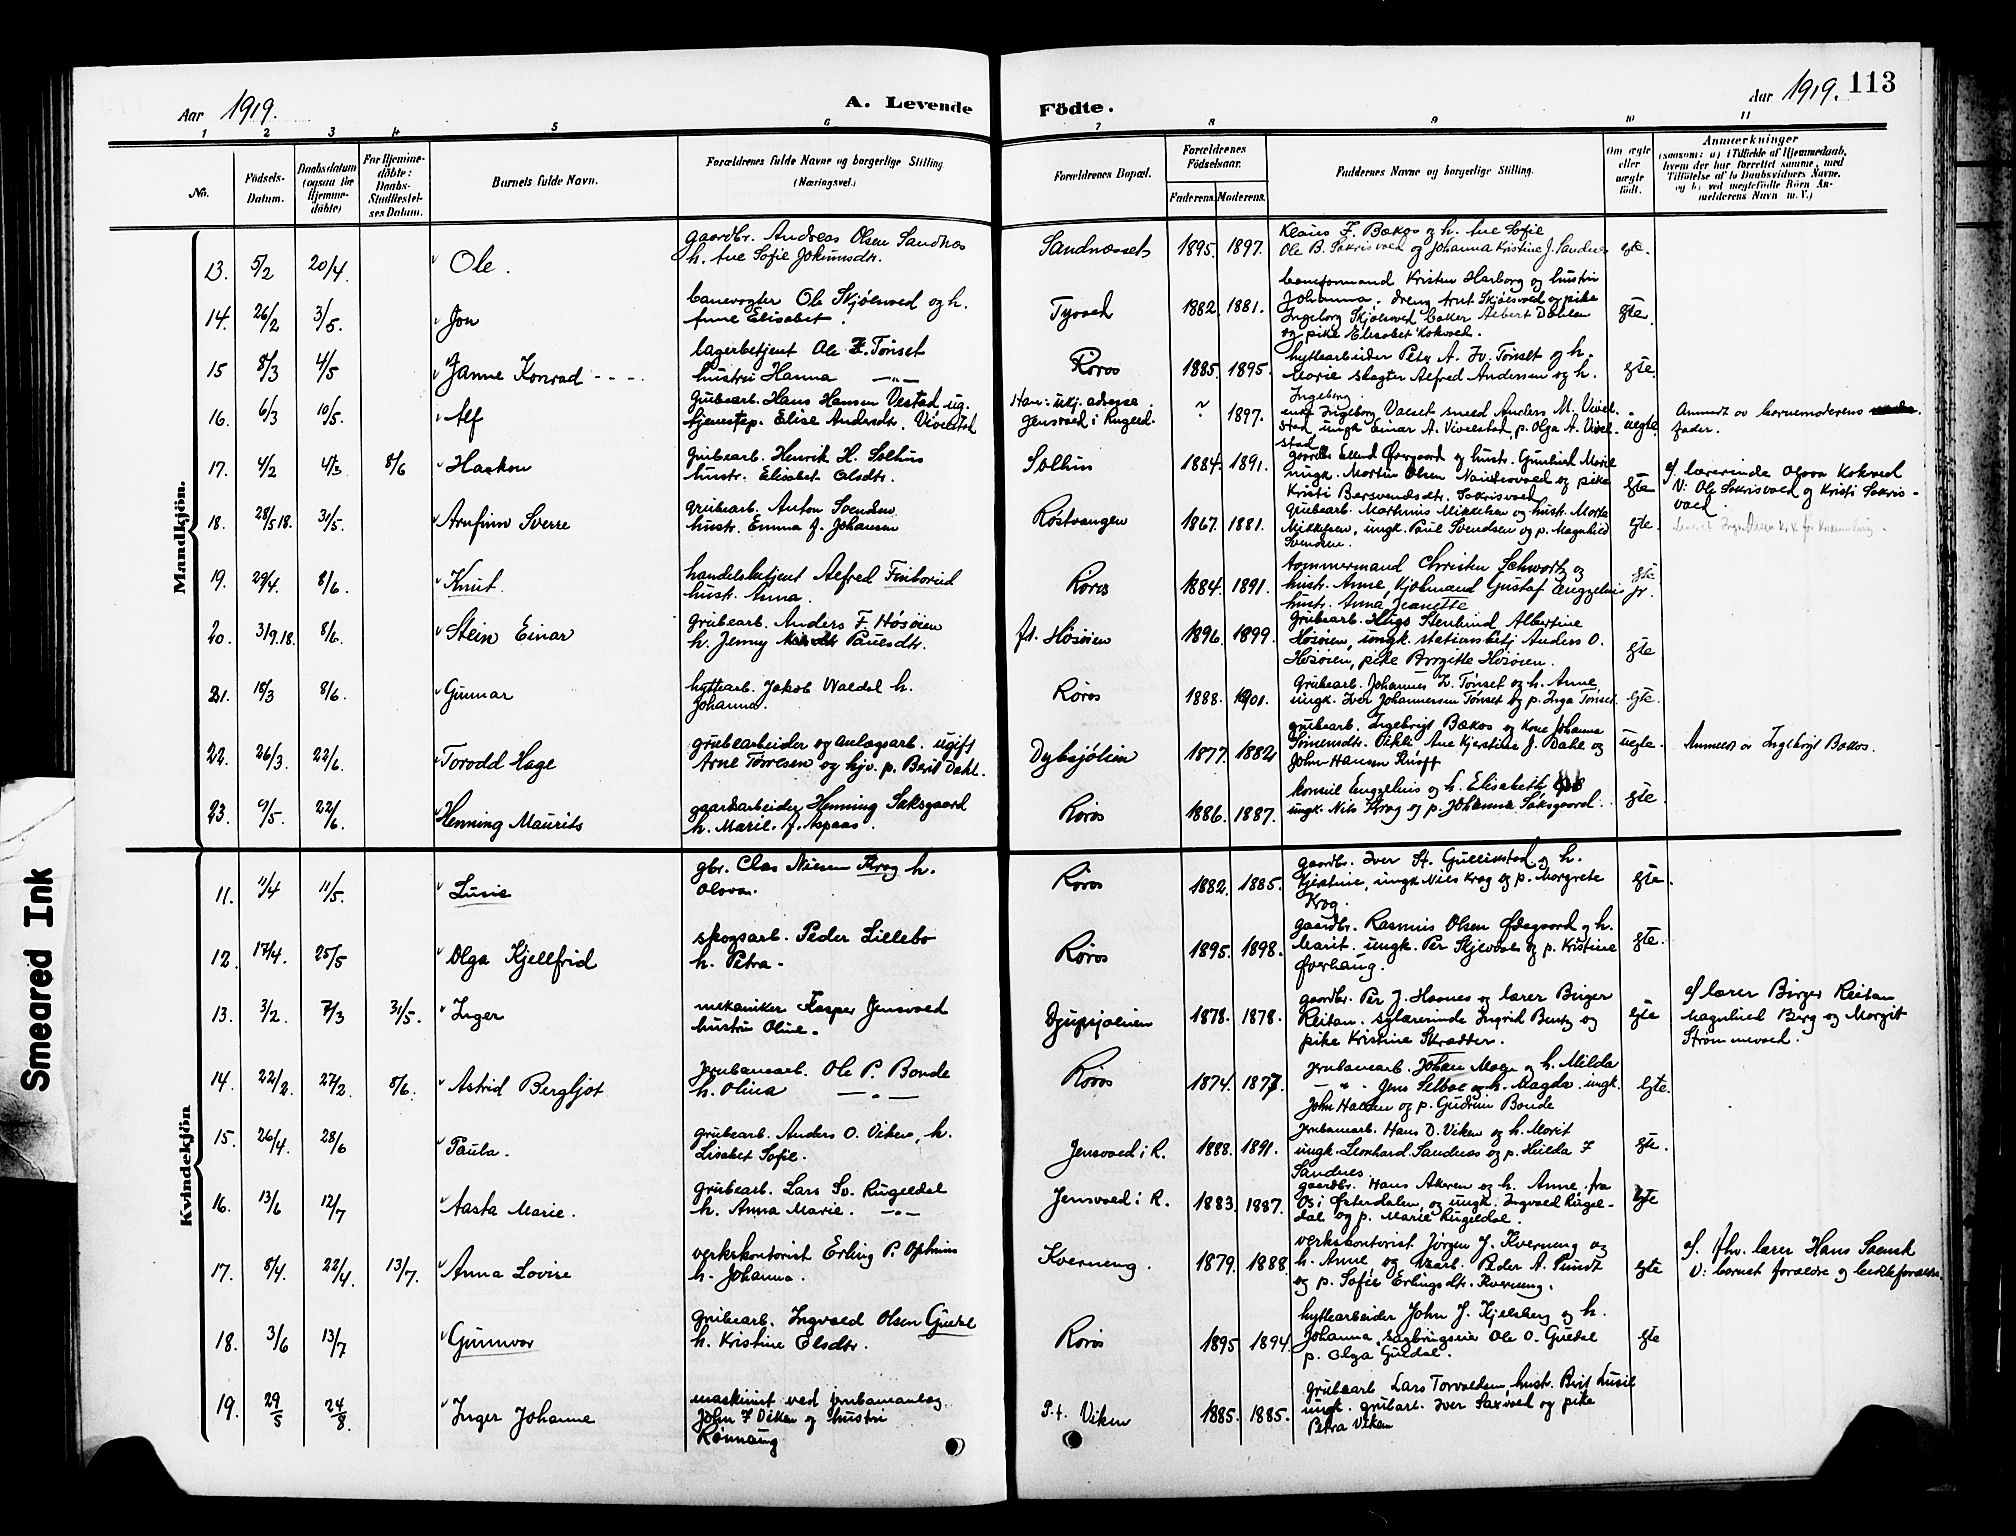 Aar 1919. A. Levende
Födte. Aar 1919. 113
1 2 3 4 5 6 7 8 9 10 11
No.
Födsels-
Datum.
Daabsdatum
(ogsaa for
Hjemme-
döbte)
For Hjemme-
döbte:
Daabs-
Stadfæstel-
ses Datum.
Barnets fulde Navn.
Forældrenes fulde Navne og borgerlige Stilling
(Næringsvei.)
Forældrenes Bopæl.
Forældrenes
Födselsaar.
Faderens. Moderens.
Faddernes Navne og borgerlige Stilling.
Om ægte
eller
uægte
födt.
Anmærkninger
(saasom: a) i Tilfælde af Hjemmedaab,
hvem der har forrettet samme, med
Tilföielse af to Daabsvidners Navne.
og b) ved uægtefödte Börn An-
melderens Navn m. V.)
Mandkjön.
13. 5/2 20/4 Ole.
gaardbr. Andreas Olsen Sandnæs
h. Ane Sofie Jokumsdtr.
Sandnæsset 1895. 1897.
Klaus F. Bakos og h. Ane Sofie
Ole B. Sakrisvold og Johanna Kristine J. Sandnes
egte.
14. 26/2 3/5. Jon
banevogter Ole Skjølsvold og h.
Anne Elisabet.
Tyvold 1882 1881.
baneformand Kristen Harborg og hustru
Johanna. dreng Arnt Skjølsvold og pike
Ingeborg Skjølsvold baker Albert Dahlen
og pike Elisabet Kokvold.
egte.
15 8/3 4/5 Janne Konrad - - -
lagerbetjent Ole E. Tønset
hustru Hanna —"—
Røros 1885. 1895.
hyttearbeider Peter A. Iv. Tønset og h.
Marie slagter Alfred Andersen og h.
Ingeborg.
egte.
16. 6/3 10/5. Alf
Grubearb. Hans Hansen Vestad ug.
tjenestep. Elise Andrsdtr. Vivelstad
Han: ukj. adresse.
Jensvold i Rugeld.
? 1897.
enke Ingeborg Vaset smed Anders M. Vivel-
stad, ungk. Einar A. Vivelstad, p. Olga A. Vivel-
stad
uegte.
Anmeldt av barnemoderens
fader.
17. 4/2 4/3 8/6 Haakon
Grubearb. Henrik H. Solhus
hustr. Elisabet Olsdtr.
Solhus 1884. 1891.
gaardbr. Erlend Øvergaard og hustr. Gunhild Marie
ungk. Morten Olsen og pike
Kristi Bersvendsdtr. Sakrisvold
egte
af lærerinde Olava Kokvold
V: Ole Sakrisvold og Kristi Sakris-
vold.
18. 28/5 18. 31/5. Arnfinn Sverre
grubearb. Anton Svendsen
hustr. Emma J. Johansen
Røstvangen 1867. 1881.
grubearb. Mathinus Mikkelsen og hust. Marta
Mikkelsen, ungk. Paul Svendsen og p. Magnhild
Svendsen.
egte.
19. 29/4. 8/6. Knut.
handelsbetjent Alfred Finborud
hustr. Anna.
Røros 1884. 1891.
tømmermand Christen Schwartz og
hustr. Anne, Kjøbmand Gustaf Engzelius jr.
hustr. Anna Jeanette
egte
20. 31/9.18. 8/6. Stein Einar
grubearb. Anders F. Høsøien
h. Jenny Paulsdtr.
pt. Høsøien 1896. 1899.
Grubearb. Hugo Stenlund Albertine
Høsøien, ungk. stationsbetj Anders O.
Høsøien, pike Birgitte Høsøien.
egte
21. 18/3 8/6. Gunnar
hyttearb. Jakob Waldal h.
Johanna.
Røros 1888. 1901.
Grubearb. Johannes Iv. Tønset og h. Anne
ungk. Iver Johannersen Tønset og p. Inga Tønset.
egte.
22. 26/3. 22/6. Torodd Hage
grubearbeider og anlægsarb. ugift
Arne Torresen og hjv. p. Berit Dahl.
Dybsjølien 1877. 1882
grubearb. Ingebrigt Bakos og Kone Johanna
Simensdtr. Vikli, Ane Kjerstine J. Dahl og
John Hansen Knoff
uegte.
Anmeldt av Ingebrigt Bakos.
23. 9/5. 22/6. Henning Maurits
gaardsarbeider Henning Saksgaard
h. Marie J. Aspaas.
Røros 1886. 1887.
konsul Engzelius og h. Elisabeth
ungk. Nils Krog og p. Johanna Saksgaard.
egte.
Kvindekjön
11. 11/4 11/5. Lusie
gbr. Clas Nilsen Krog h.
Olava.
Røros 1882. 1885.
gaardbr. Iver St. Gullikstad og h.
Kjerstine, ungk Nils Krog og p. Margrete
Krog.
egte.
12. 17/4. 25/5 Olga Kjellfrid
skogsarb. Peder Lillebo
h. Petra.
Røros 1895. 1898.
gaardbr. Rasmus Olsen Ødegaard og h.
Marit. ungk. Per Skjevdal og p. Kristine
Øverhaug.
egte.
13. 3/2. 7/3 31/5. Inger
mekaniker Kasper Jensvold
hustru Oline.
Djupsjølien 1878. 1878.
gaardbr. Per J. Haanes og lærer Birger
Reitan. sylærerinde Ingrid Bentz og
pike Kristine Skradder.
egte
af lærer Birger Reitan
Magnhild Berg og Margit
Strømmevold.
14. 22/2. 27/2. 8/6. Astrid Bergljot
Jernbanearb. Ole P. Bonde
h. Olina —"—
Røros 1874. 1877
jernbanearb. Johan Moen og h. Milda
—"— Jens Selboe og h. Magda. ungk.
John Halden og p. Gudrun Bonde
egte.
15. 26/4. 28/6 Paula.
grubearb. Anders O. Viken, h.
Lisabet Sofie.
Jensvold i R. 1888. 1891.
jernbanearb. Hans D. Viken og h. Marit
ungk. Leonhard Sandnes og p. Hilda F
Sandnes
egte.
16. 13/6 12/7 Aasta Marie.
grubearb. Lars Sv. Rugeldal
h. Anna Marie. —"—
Jensvold i R. 1883. 1887.
gaardbr. Hans Akeren og h. Anne. fra
Os i Østerdalen, og ungk. Ingvald Rugel-
dal og p. Marie Rugeldal.
egte
17. 8/4. 22/4. 13/7. Anna Lovise
verkskontorist Erling P. Ophus
h. Johanna.
Kverneng. 1879. 1888.
verkskontorist Jørgen J. Kverneng og
h. Anne, og Peder A. Pundt
og p. Sofie Erlingsdtr. Kverneng.
egte
af. fhv. lærer Hans Svensk
V: barnets forældre og besteforældre.
18. 3/6 13/7 Gunnvor
grubearb. Ingvald Olsen Guldal
h. Kristine Elsdtr.
Røros 1895 1894.
hyttearbeider John J. Kjelsberg og h.
Johanna. sagbrugseier Ole O. Guldal
p. Olga Guldal.
egte
19. 29/5 24/8. Inger Johanne
maskinist ved jernbaneanlæg.
John F Viken og hustru
Rønnaug
P.t. Viken 1885. 1885.
grubearb Lars Torvaldsen, hustr. Berit Lusie
ungk. grubarb. Iver Saxvold og pike
Petra Viken
Smeared Ink